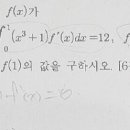 f(x)가
∫₀¹(x³+1)f″(x)dx=12, f
f(1)의 값을 구하시오. [6
f′(x)=6